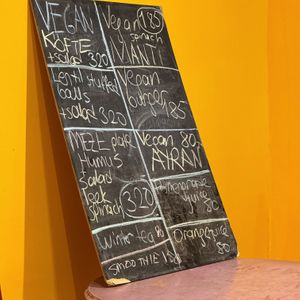 VEGAN
KÖFTE
+salad 320
Vegan 185
spinach
MANTI
Lentil stuffed
balls
+salad 320
Vegan
burger
185
MEZE plate
Humus
Salad
Leek
Spinach 320
Vegan 80
AYRAN
Pomegranate
juice
80
Winter tea 80
SMOOTHIE
Orange juice
80